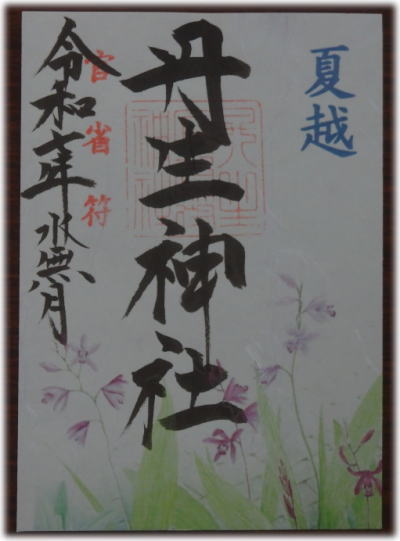 夏越
丹生神社
官省符
令和元年水無月